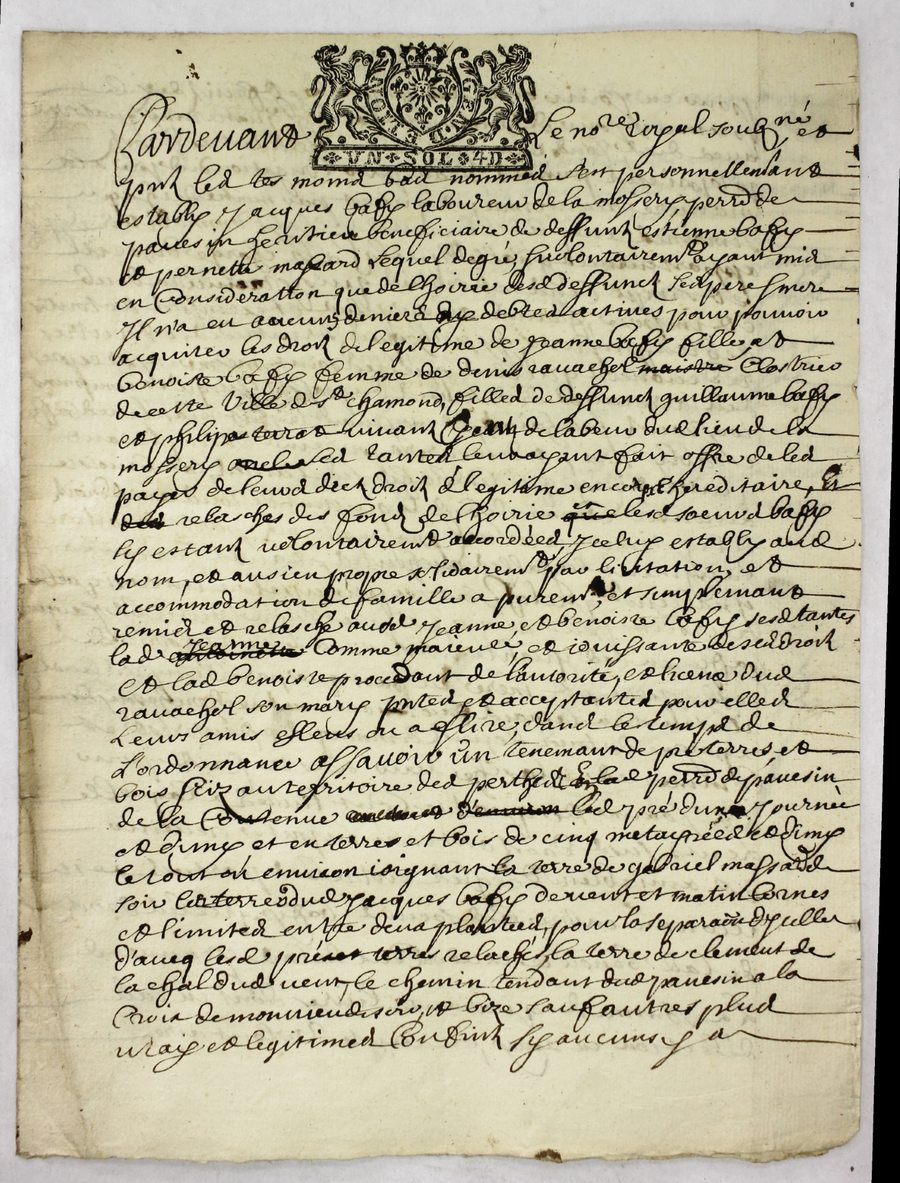 MON ET D GEN
UN SOL 4D
Pardevant Le no.re royal soubz.né et
pnts les tesmoins bas nommés s'est personnellement
estably Jacques bassy laboureur de la mossery perr.se de
pavesin heritier beneficiaire de deffunts estienne bassy
et pernette massard Lequel de gré, sur ayant mis
en Consideration que de l'hoirie desd deffuncts ses pere & mere
Il n'a eu aucuns deniers ny debtes actives pour pouvoir
acquiter les droits de legitime de Jeanne bassy fille, et
benoiste bassy femme de denis ravachol Clostrier
de cette Ville de S.t chamond, filles de deffunts guillaume bassy
et philipa terrat vivants de labeur dud lieu de la
mossery Lesd tantes luy ayant fait offre de les
payer de leursd droits de legitime en corps hereditaire, Et
relasches des fonds de l'hoirie lesd soeurs bassy
s'y estants volontairement accordées Jceluy estably aud
nom, et au sien propre solidairem.t par licitation, et
accommodation de famille a purem.t et simplement
remis et relasché ausd Jeanne et benoiste bassy sesd tantes
lad Jeanne comme majeure, et jouissante de ses droits
et lad benoiste procedant de l'autorité, et licence dud
ravachol son mary pntes et acceptantes pour elles
Leurs amis esleus ou a eslire, dans le temps de
L'ordonnance assavoir un tenemant de pré terres et
bois sciz au territoire des lad perr.se de pavesin
de la Contenue led pré d'une Journée
et dimy et en terres et bois de cinq metagrées et dimy
le tout ou environ joignant la terre de gabriel massard de
soir la terre dud Jacques bassy de vent et matin bornes
et limites entre deux plantées, pour la separaon d'Jcelles
d'avec lesd pré et terres relachés, la terre de clement de
la chal dud vent, le chemin tendant dud pavesin a la
Croix de de soir, et bize sauf autres plus
vrays et legitimes Confins sy aucuns y a